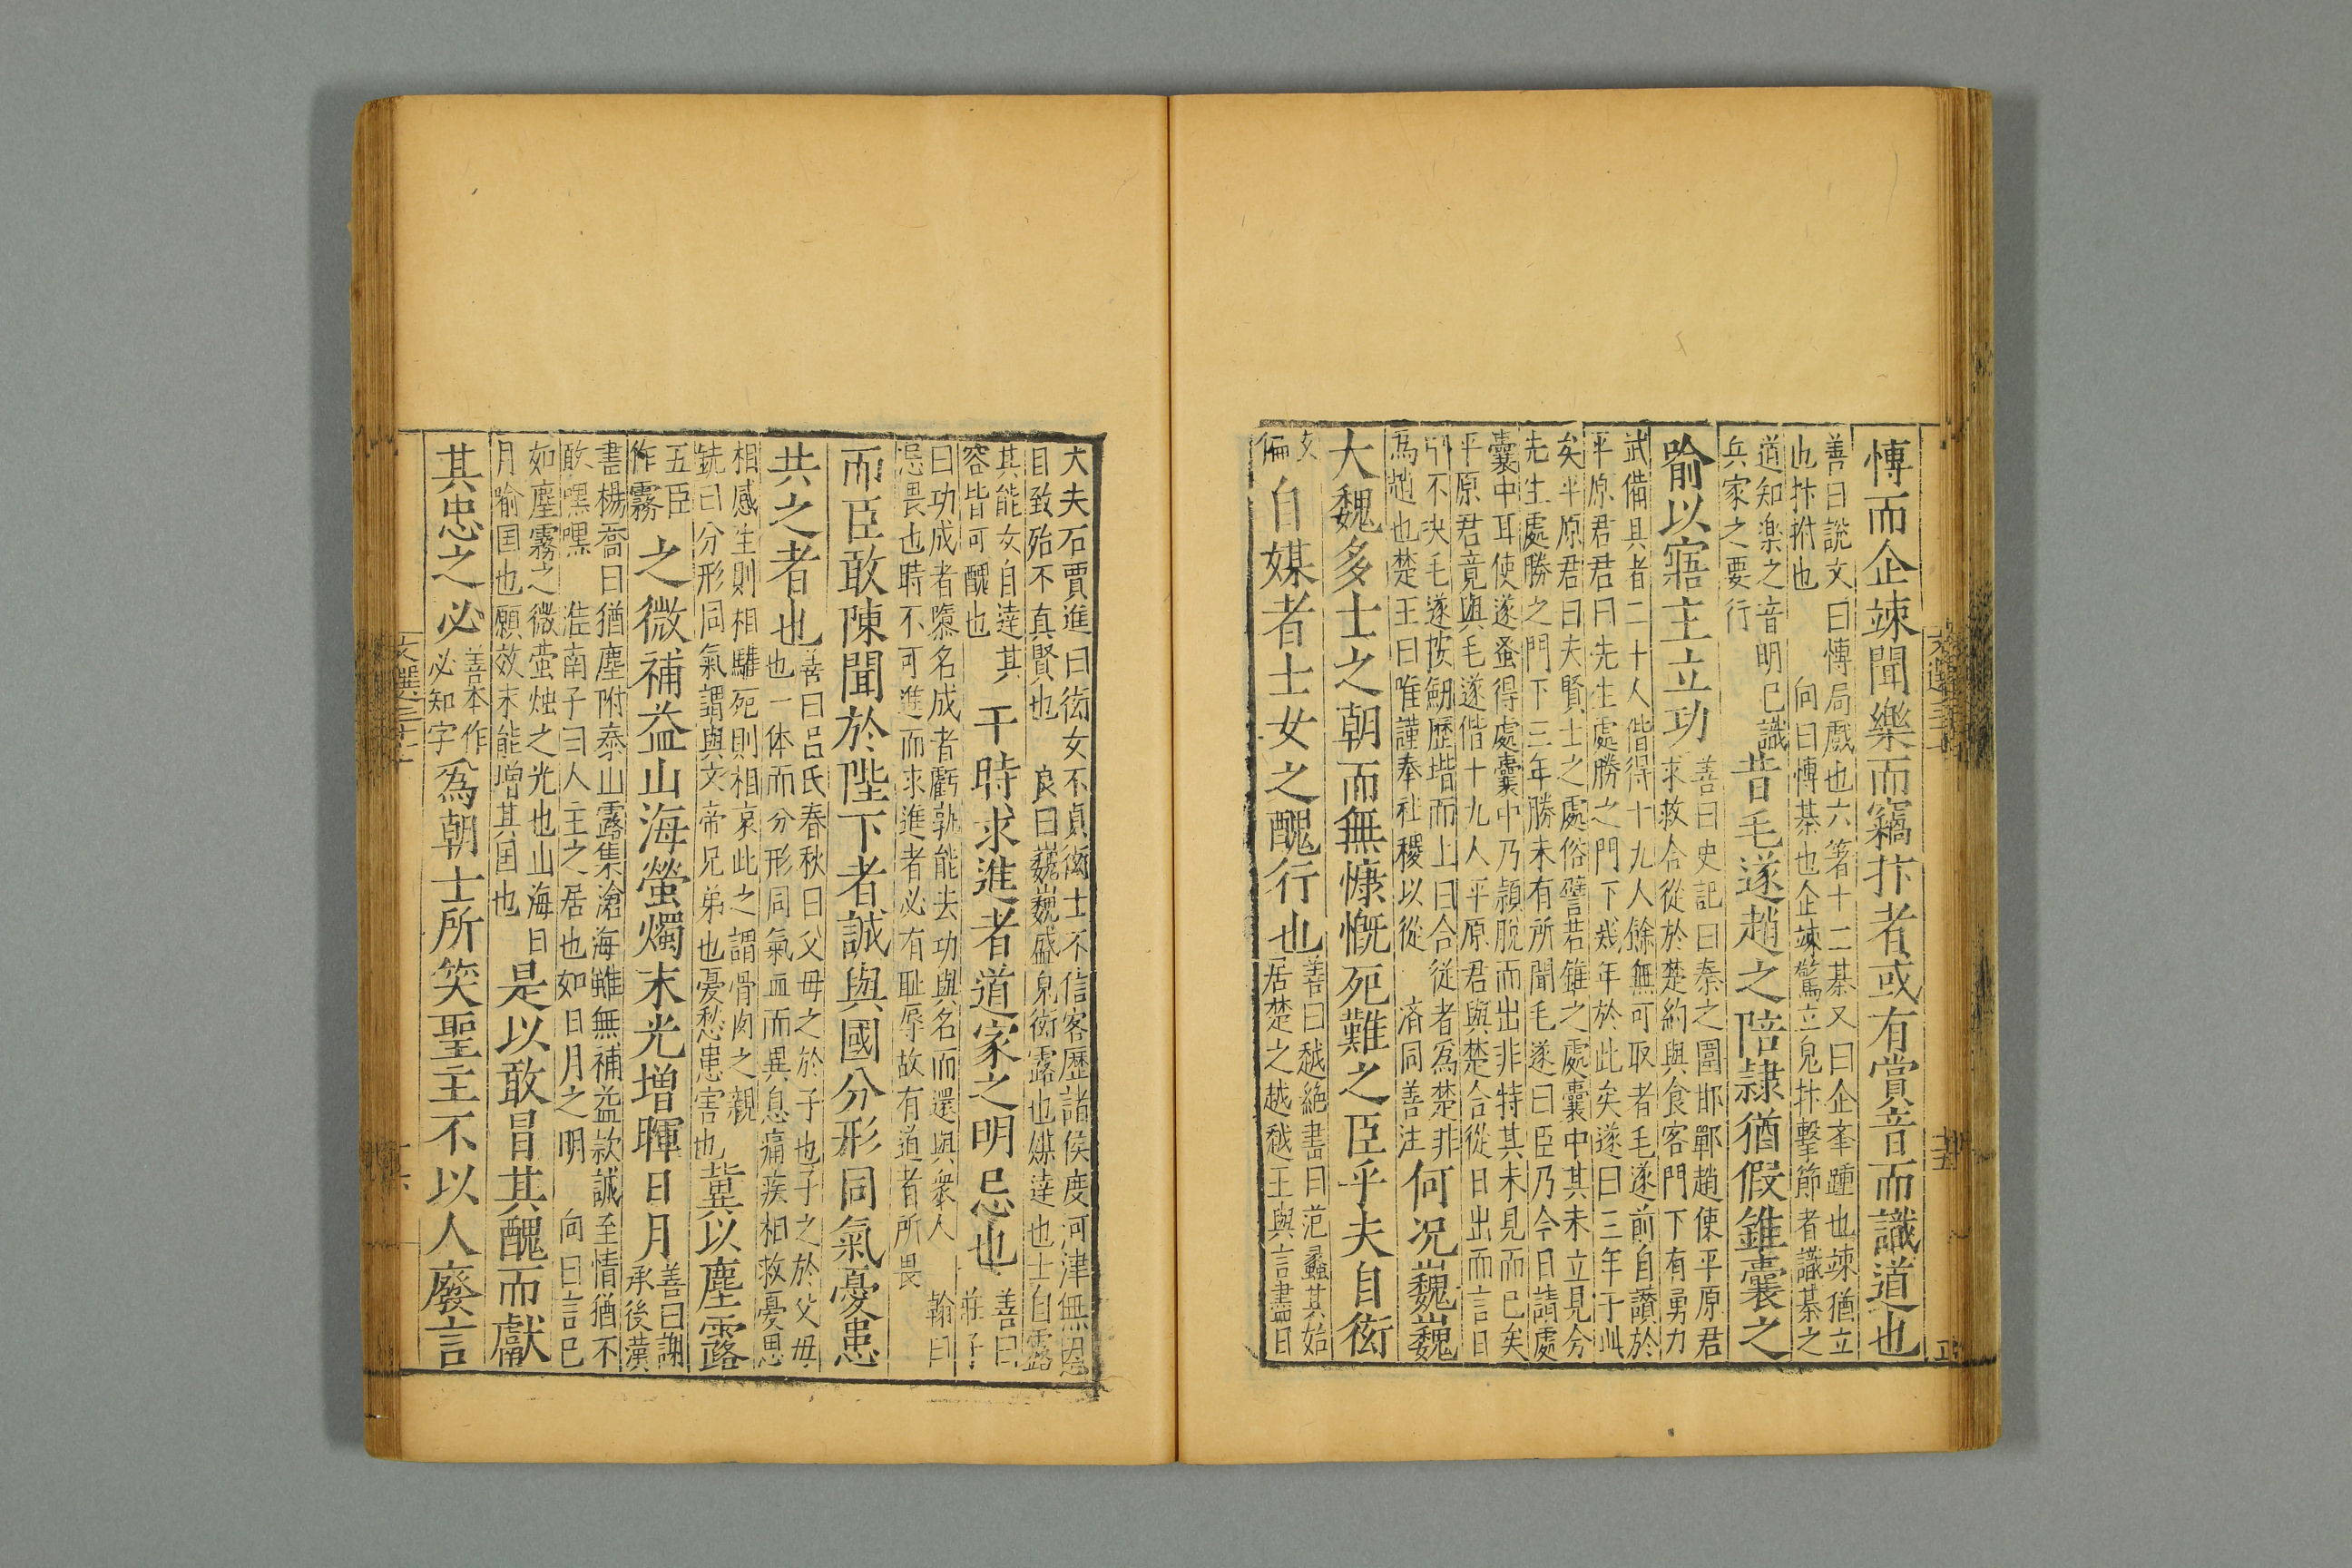 慱而企竦聞樂而竊抃者或有賞音而識道也
善曰說文曰慱局戲也六箸十二棊又曰企舉踵也竦猶立
也抃拊也 向曰慱棊也企竦驚立皃抃擊節者識棊之
道知楽之音明已識
兵家之要行
昔毛遂趙之陪隷猶假錐囊之
喻以寤主立功
善曰史記曰秦之圍邯鄲趙使平原君
求救合從於楚約與食客門下有勇力
武備具者二十人偕得十九人餘無可取者毛遂前自讃於
平原君君曰先生處勝之門下幾年於此矣遂曰三年于此
矣平原君曰夫賢士之處俗譬若錐之處囊中其未立見今
先生處勝之門下三年勝未有所聞毛遂曰臣乃今日請處
囊中耳使遂蚤得處囊中乃頴脫而出非特其未見而已矣
平原君竟與毛遂偕十九人平原君與楚合從日出而言日
中不決毛遂按劒歷堦而上曰合従者爲楚非
爲趙也楚王曰唯謹奉社稷以從 済同善注
何況巍巍
大魏多士之朝而無慷慨死難之臣乎夫自衒
自媒者士女之醜行也
善曰越絶書曰范蠡其始
居楚之越越王與言盡日
大夫石賈進曰衒女不貞衒士不信客歷諸侯度河津無因
自致殆不真賢也 良曰巍巍盛皃衒露也媒達也士自露
其能女自達其
容皆可醜也
干時求進者道家之明忌也
善曰
莊子
曰功成者隳名成者虧孰能去功與名而還與衆人 翰曰
忌畏也時不可進而求進者必有恥辱故有道者所畏
而臣敢陳聞於陛下者誠與國分形同氣憂患
共之者也
善曰吕氏春秋曰父母之於子也子之於父母
也一体而分形同氣血而異息痛疾相救憂思
相感生則相驩死則相哀此之謂骨肉之親
銑曰分形同氣謂與文帝兄弟也憂愁患害也
冀以塵露
五臣
作霧
之微補益山海螢燭末光增暉日月
善曰謝
承後漢
書楊喬曰猶塵附泰山露集滄海雖無補益款誠至情猶不
敢嘿嘿 淮南子曰人主之居也如日月之明 向曰言已
如塵霧之微螢烛之光也山海日
月喻囯也願效末能增其囯也
是以敢冒其醜而獻
其忠
之必
善本作
必知字
爲朝士所笑聖主不以人廢言